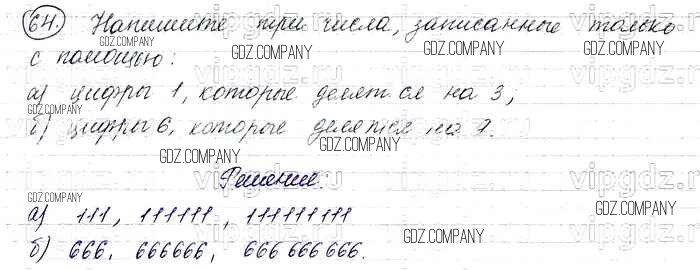 64. Напишите три числа, записанные только
с помощью:
а) цифры 1, которые делятся на 3;
б) цифры 6, которые делятся на 9.
Решение:
а) 111, 111111, 111111111
б) 666, 666666, 666 666 666.
GDZ.COMPANY
GDZ.COMPANY
GDZ.COMPANY
GDZ.COMPANY
GDZ.COMPANY
GDZ.COMPANY
GDZ.COMPANY
GDZ.COMPANY
vipgdz.ru
vipgdz.ru
vipgdz.ru